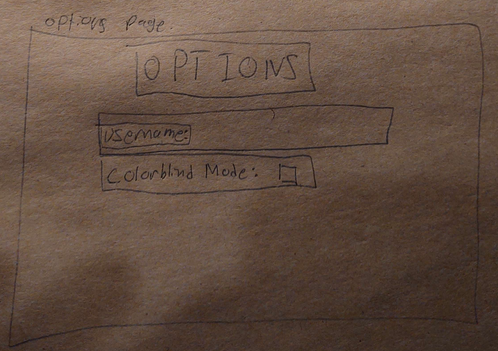 options page.
OPTIONS
Username:
Colorblind Mode: